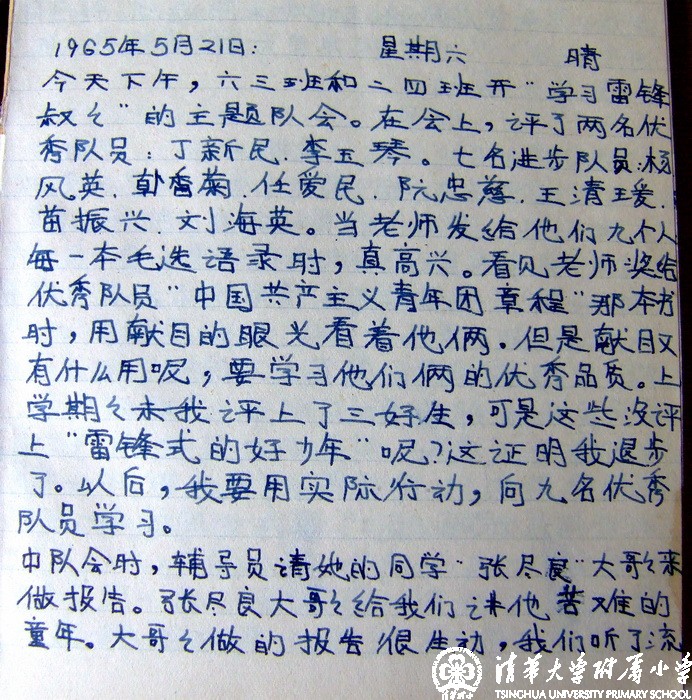 1965年5月21日: 星期六 晴
今天下午，六三班和二四班开"学习雷锋
叔々"的主题队会。在会上，评了两名优
秀队员：丁新民、李玉琴。七名进步队员：杨
风英、韩香菊、任爱民、阮忠慈、王清瑗、
苗振兴、刘海英。当老师发给他们九个人
每一本毛选语录时，真高兴。看见老师奖给
优秀队员"中国共产主义青年团章程"那本书
时，用献目的眼光看着他俩。但是献目又
有什么用呢，要学习他们俩的优秀品质。上
学期々末我评上了三好生，可是这些没评
上"雷锋式的好少年"呢？这证明我退步
了。以后，我要用实际行动，向九名优秀
队员学习。
中队会时，辅导员请她的同学"张尽良"大哥々来
做报告。张尽良大哥々给我们讲他苦难的
童年。大哥々做的报告很生动，我们听了流
清华大学附属小学
TSINGHUA UNIVERSITY PRIMARY SCHOOL